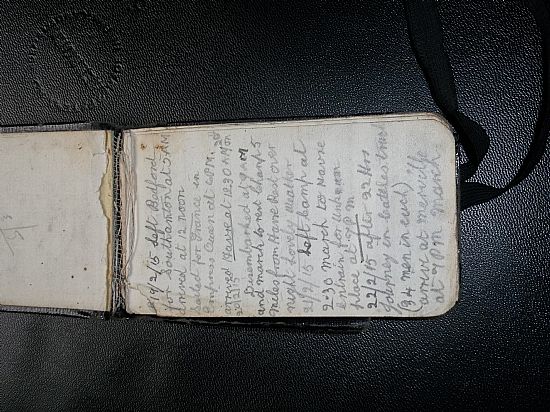 19/2/15 left Bedford
for Southampton at AM
arrived at 12 noon
sailed for France in
Empress Queen at 6 P.M.
arrived Havre at 12.30 AM on
21/2/15
Disembarked at 7 AM
and march to rest Camp 5
miles from Havre Rest over
night Lovely Weather
21/2/15 left Camp at
2-30 march to Havre
Entrain for unknown
place at 6 PM
22/2/15 after 22 Hrs
Journey in cattle truck
(34 men in each)
arrive at Merville
at 4 PM march